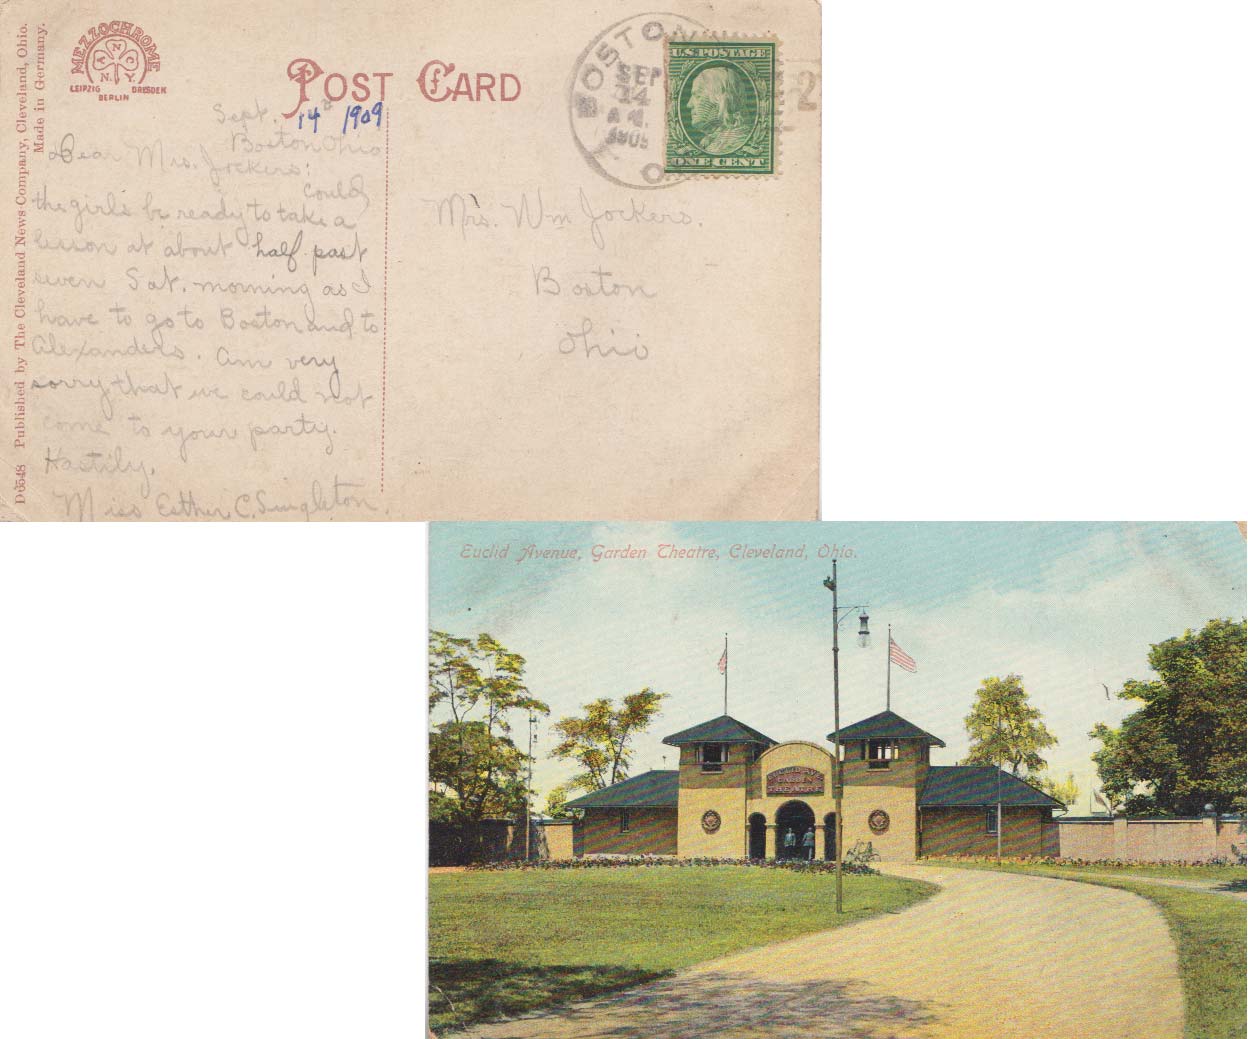 D6548 Published by The Cleveland News Company, Cleveland, Ohio.
Made in Germany.
MEZZOCHROME
A N C
N. Y.
LEIPZIG DRESDEN
BERLIN
POST CARD
BOSTON
SEP
14
A M.
1909
O
2
U.S. POSTAGE
ONE CENT
Sept.
14 1909
Boston Ohio
Dear Mrs. Jockers:
Could
the girls be ready to take a
lesson at about half past
seven Sat. morning as I
have to go to Boston and to
Alexanders. Am very
sorry that we could not
come to your party.
Hastily,
Miss Esther C. Singleton.
Mrs. Wm Jockers.
Boston
Ohio
Euclid Avenue, Garden Theatre, Cleveland, Ohio.
EUCLID AVE
GARDEN
THEATRE